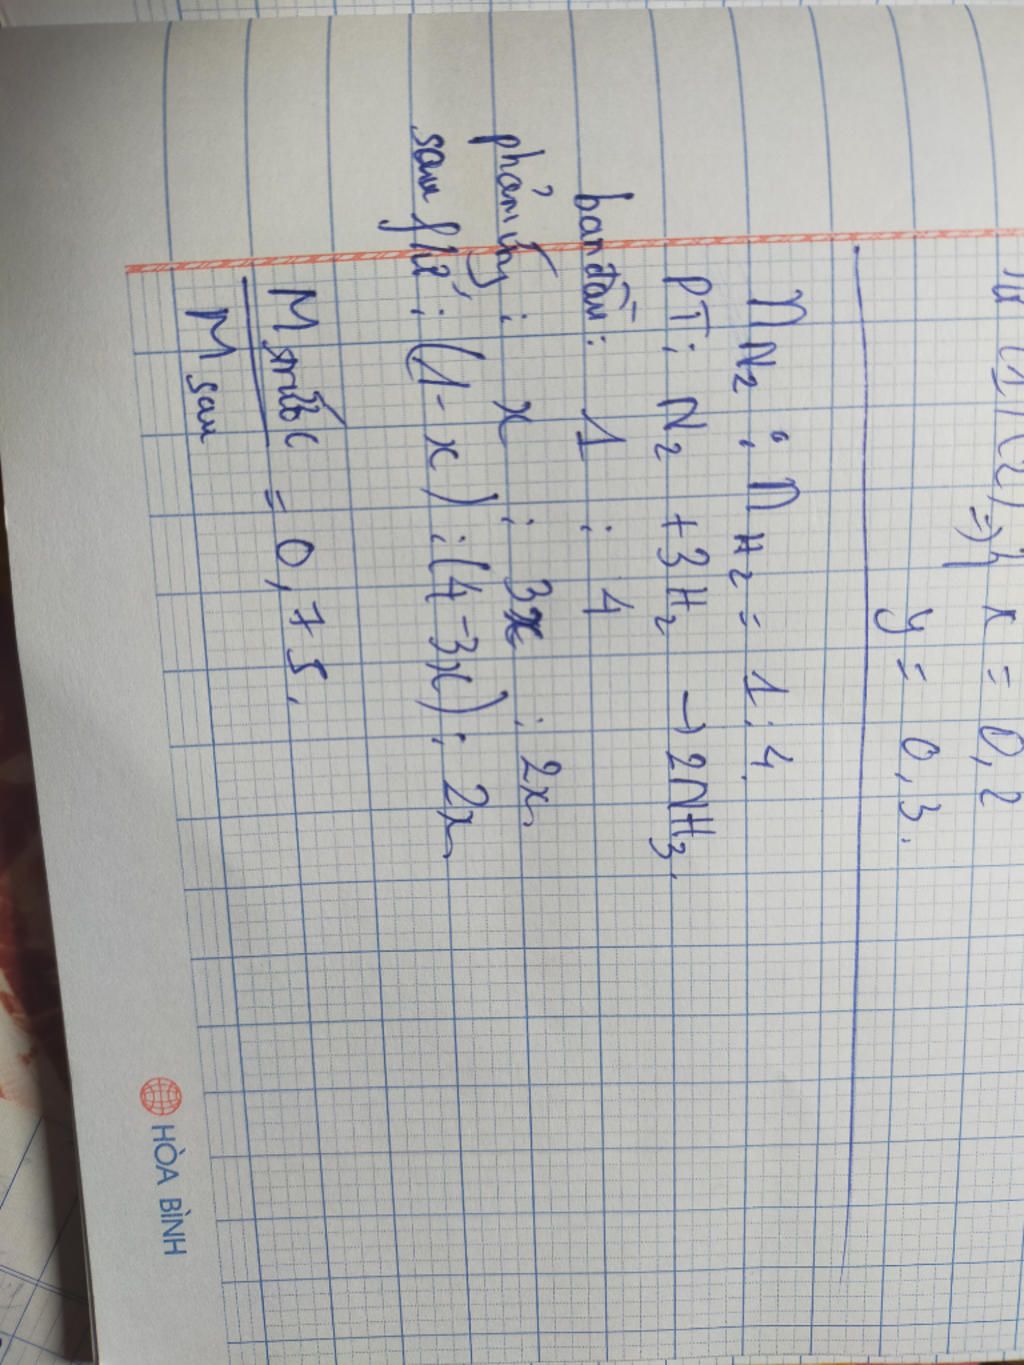 Từ (1)(2) => { x = 0,2
y = 0,3.
n N₂ : n H₂ = 1:4
PT: N₂ + 3H₂ → 2NH₃.
ban đầu: 1 : 4
phản ứng: x : 3x : 2x
sau : (1-x) : (4-3x) : 2x
M trước = 0,75.
M sau
HÒA BÌNH